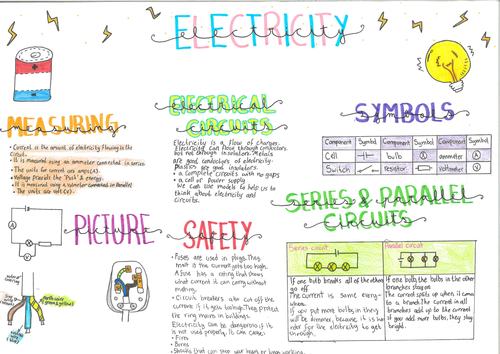 ELECTRICITY
electricity
MEASURING
measuring
• Current is the amount of electricity flowing in the
circuit.
• It is measured using an ammeter connected in series
• The units for current are amps (A).
• Voltage the 'Push' & energy.
• It is measured using a voltmeter connected in Parallel
• The units are volt (V).
ELECTRICAL
electrical
CIRCUITS
circuits
Electricity is a flow of charges.
Electricity can flow through conductors
but not through insulators. Metals
are good conductors of electricity.
plastics are good insulators.
• a complete circuits with no gaps
• a cell or Power supply
We can use models to help us to
think about electricity and
circuits.
SYMBOLS
symbols
Component Symbol Component Symbol Component Symbol
Cell bulb ammeter A
Switch resistor voltmeter V
PICTURE
picture
A
V
SAFETY
safety
• Fuses are used in plugs. They
melt if the current gets too high.
A fuse has a rating that shows
what current it can carry without
melting.
• Circuit breakers also cut off the
current if it's too high. They protect
the ring mains in buildings.
Electricity can be dangerous if it
is not used properly. It can cause:
• Fires
• Burns
• Shocks that can stop your heart or lungs working.
SERIES & PARALLEL
series & parallel
CIRCUITS
circuits
Series circuit
If one bulb breaks all of the others
go off.
The current is same every-
where.
If you put more bulbs in they
will be dimmer, because it is har
rder for the electricity to get
through.
Parallel circuit
If one bulb, the bulbs in the other
branches stay on.
The current splits up when it comes
to a branch. The current in all
branches add up to the current
If you add more bulbs, they stay
bright.